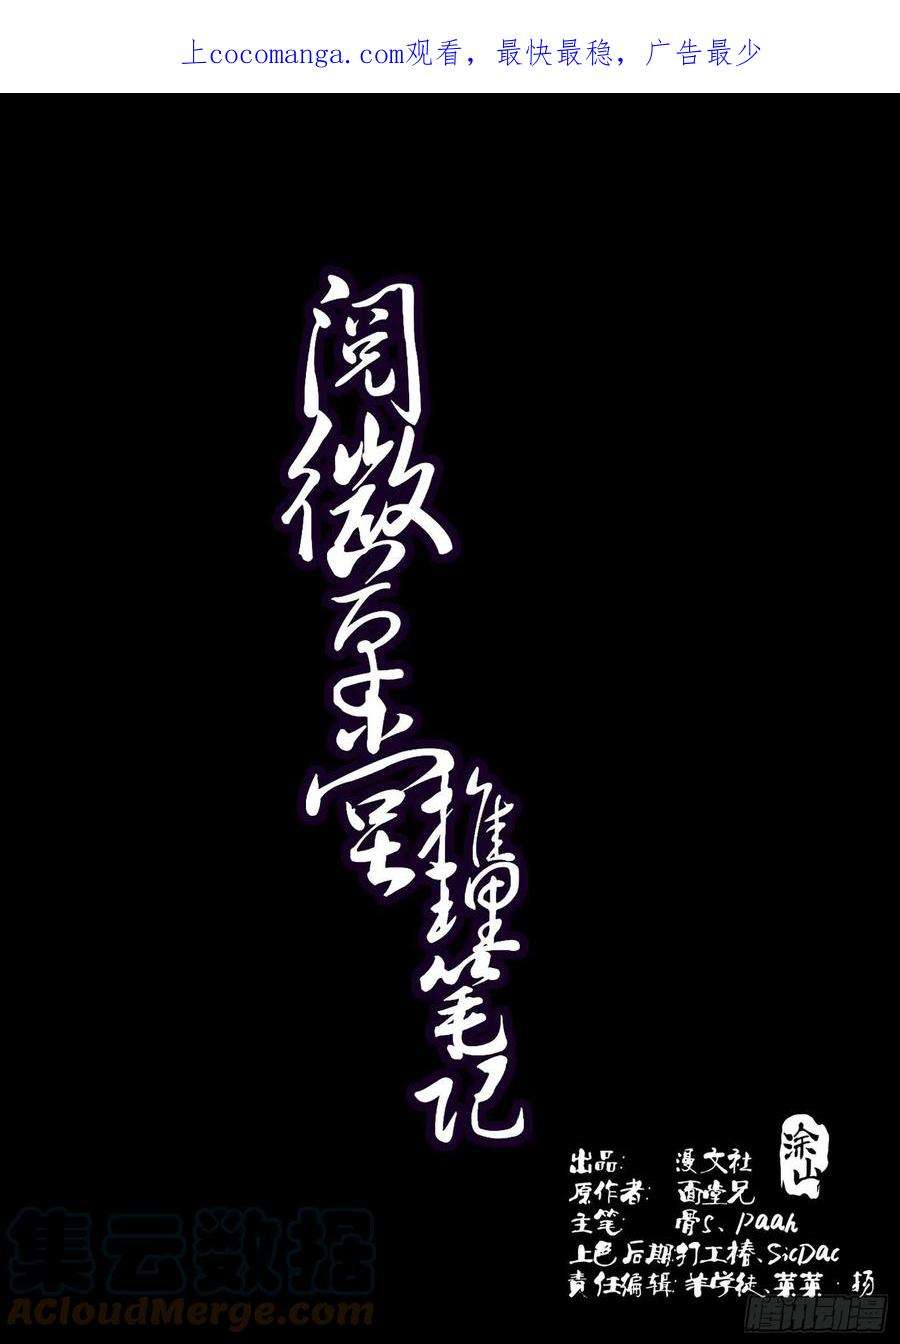 上cocomanga.com观看，最快最稳，广告最少
阅微草堂推理笔记
涂山
出品: 漫文社
原作者: 面堂兄
主笔: 骨S、paah
上色后期:打工椿、SicDac
責任编辑:羊学徒、菜菜·扬
集云数据
ACloudMerge.com
腾讯动漫